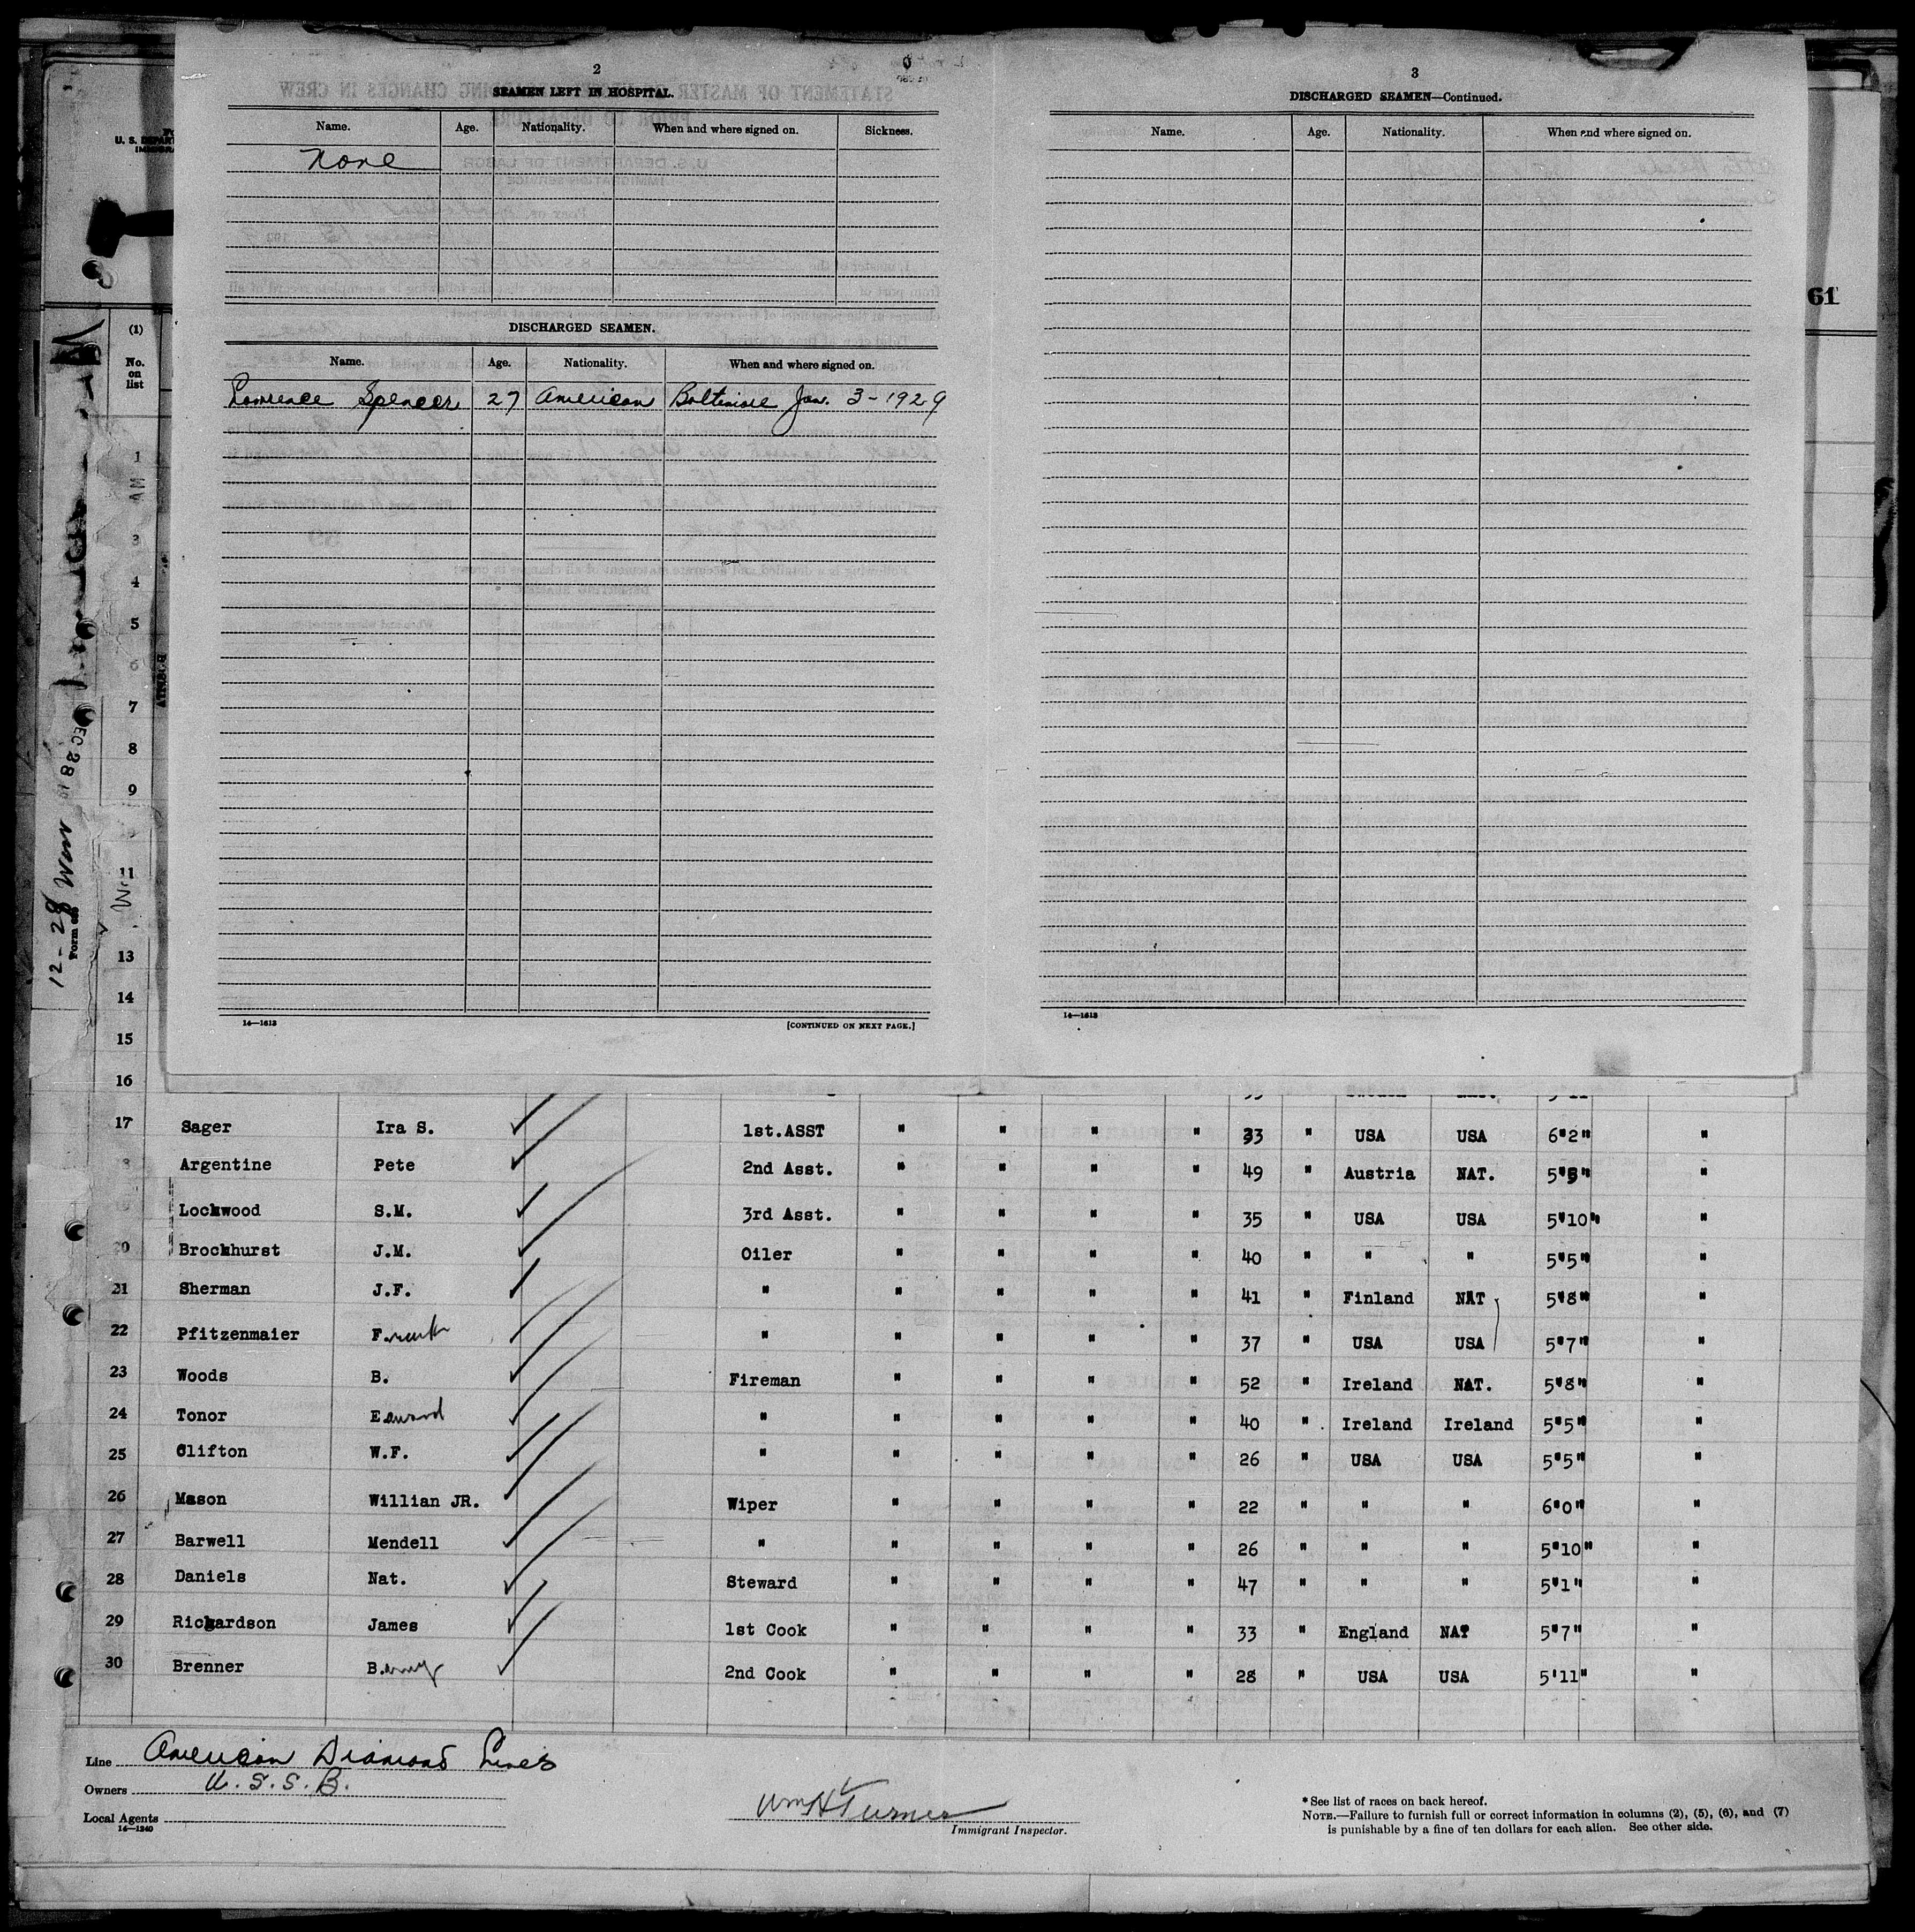 2
SEAMEN LEFT IN HOSPITAL.
Name. Age. Nationality. When and where signed on. Sickness.
None
DISCHARGED SEAMEN.
Name. Age. Nationality. When and where signed on.
Lawrence Spencer 27 American Baltimore Jan. 3-1929
14—1613 [CONTINUED ON NEXT PAGE.]
3
DISCHARGED SEAMEN—Continued.
Name. Age. Nationality. When and where signed on.
14—1613
61
(1)
No. on list
1
3
4
5
6
7
8
9
11
13
14
15
16
12-28
17 Sager Ira S. 1st.ASST " " " " 33 " USA USA 6"2" "
Argentine Pete 2nd Asst. " " " " 49 " Austria NAT. 5"5" "
Lockwood S.M. 3rd Asst. " " " " 35 " USA USA 5"10" "
20 Brockhurst J.M. Oiler " " " " 40 " " " 5"5" "
21 Sherman J.F. " " " " " 41 " Finland NAT 5"8" "
22 Pfitzenmaier Frank " " " " " 37 " USA USA 5"7" "
23 Woods B. Fireman " " " " 52 " Ireland NAT. 5"8" "
24 Tonor Edward " " " " " 40 " Ireland Ireland 5"5" "
25 Clifton W.F. " " " " " 26 " USA USA 5"5" "
26 Mason Willian JR. Wiper " " " " 22 " " " 6"0" "
27 Barwell Mendell " " " " " 26 " " " 5"10" "
28 Daniels Nat. Steward " " " " 47 " " " 5"1" "
29 Richardson James 1st Cook " " " " 33 " England NAT 5"7" "
30 Brenner 2nd Cook " " " " 28 " USA USA 5'11" "
Line American Diamond Lines
Owners U.S.S.B.
Local Agents
14—1240
Wm H Turner
Immigrant Inspector.
* See list of races on back hereof.
NOTE.—Failure to furnish full or correct information in columns (2), (5), (6), and (7)
is punishable by a fine of ten dollars for each alien. See other side.